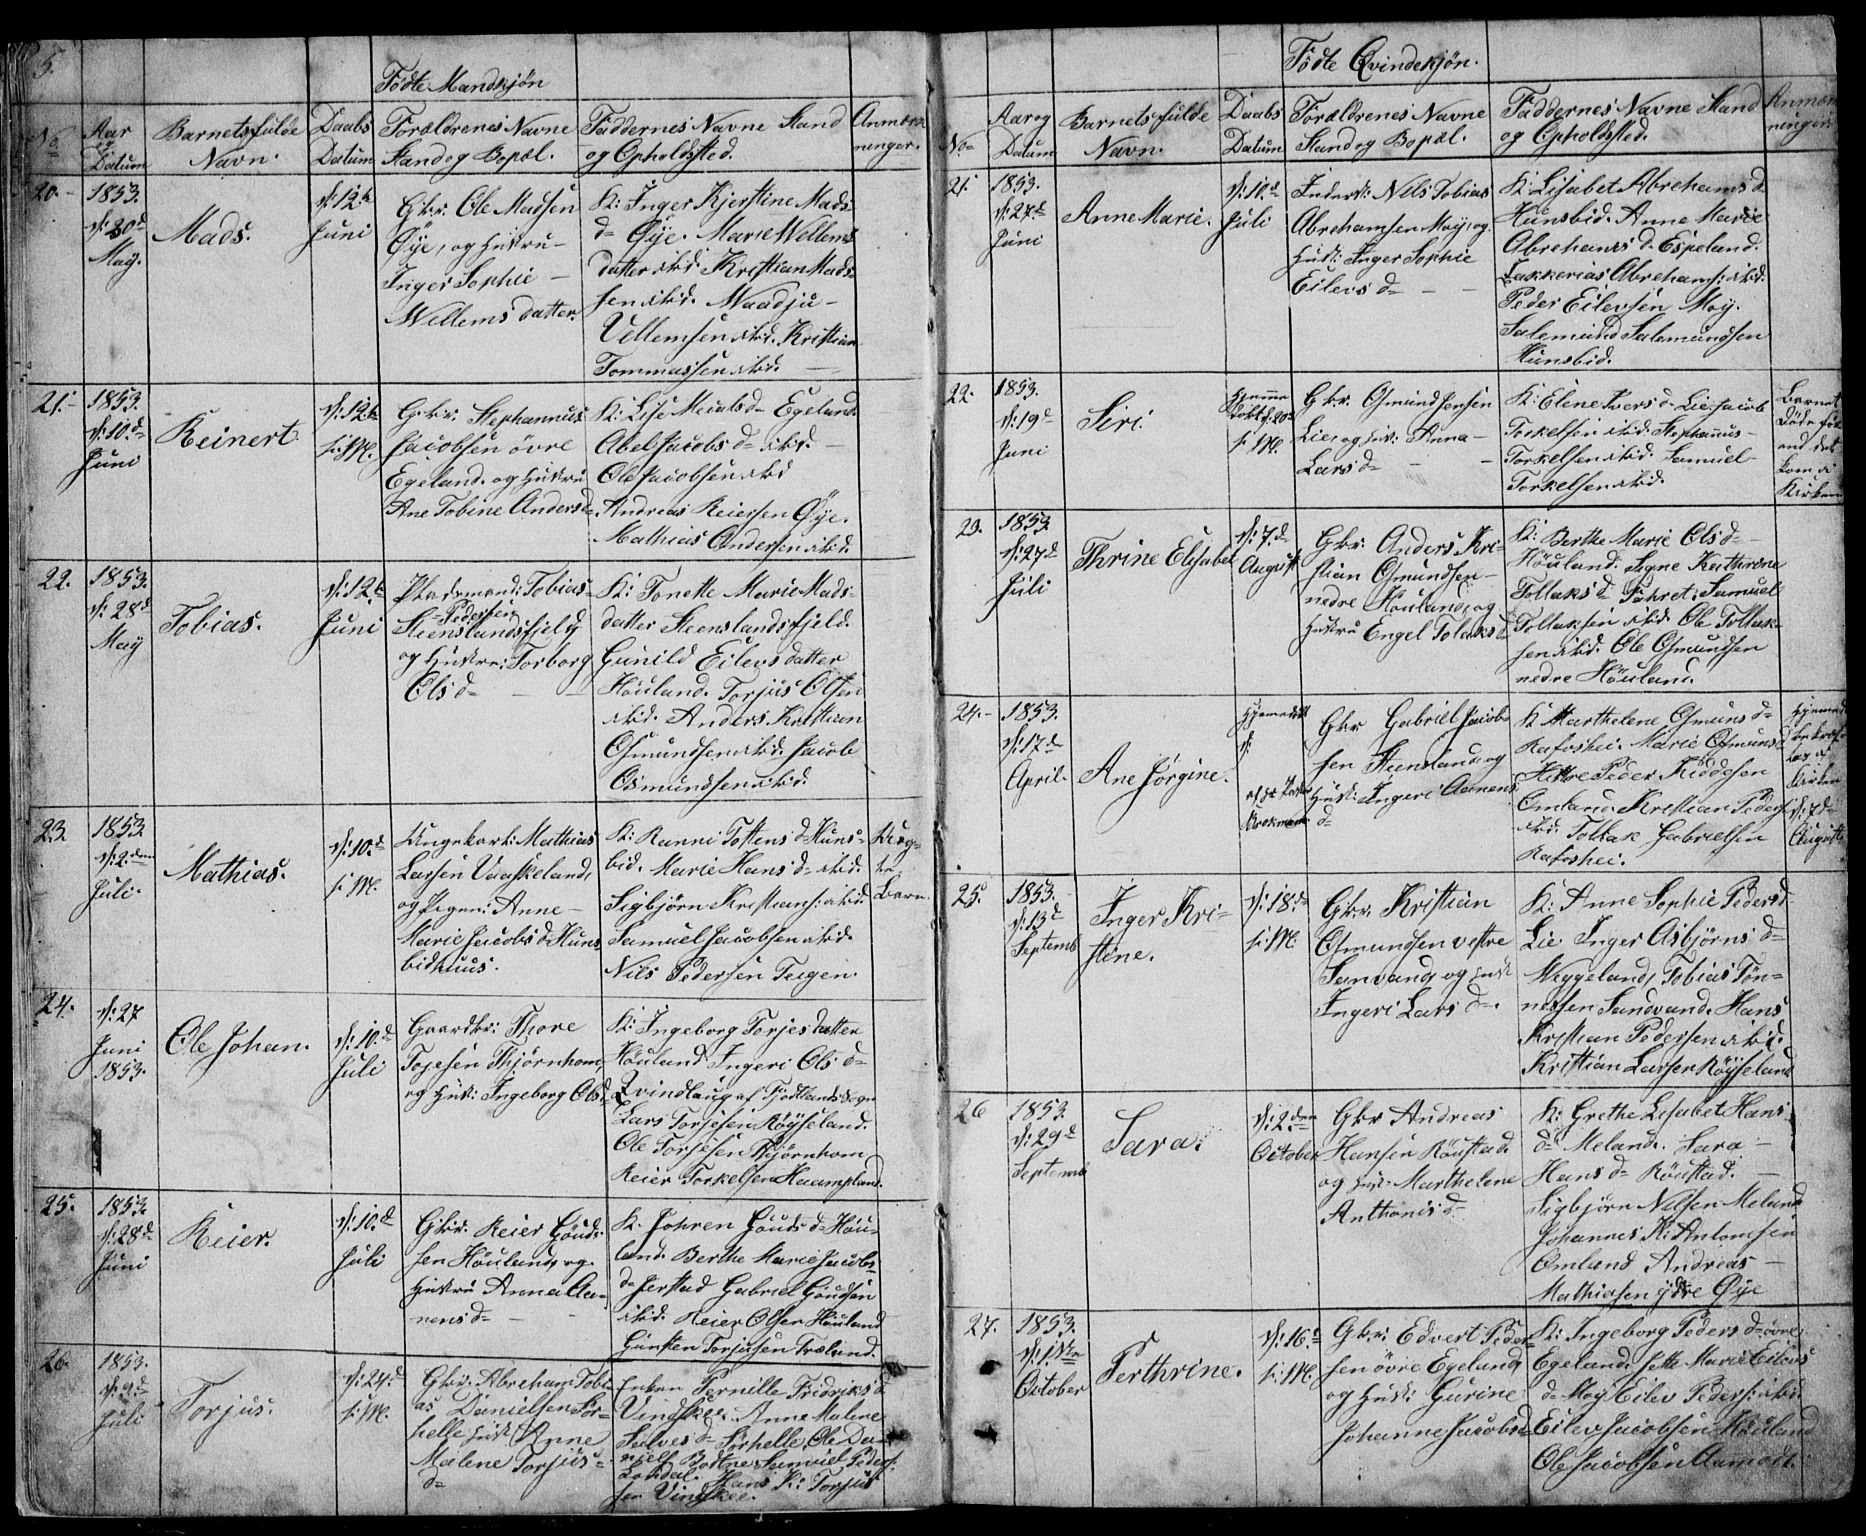 5.
Födte Mandkjön
No
Aar og Datum
Barnets fulde Navn.
Daabs Datum
Forældrenes Navne Stand og Bopæl.
Faddernes Navne Stand og Opholdsted.
Anmærkninger.
20.
1853.
d: 30d
May.
Mads.
d: 12te
Juni
Gbr: Ole Madsen
Øye, og Hustru
Inger Sophie
Willems datter
K: Inger Kjerstine Mads-
d= Øye. Marie Wellems
datter ibid. Kristian Mads-
sen ibid.
Vellemsen ibid. Kristian
Tommassen ibid.
21.
1853.
d: 10.d
Juni
Reinert
d: 12te
s: M.
Gbr: Stephannus
Jacobsen övre
Egeland og Hustru
Ane Tobine Anders d
K: Lise Meials d= Egeland
Abel Jacobs d= ibid.
Ole Jacobsen ibid
Andreas Reiersen Øye.
Mathias Andersen ibid.
22.
1853.
d: 28d
May
Tobias.
d: 12te
Juni
Pladsmand: Tobias
Pedersen
Steenslandsfjeld
og Hustru: Torborg
Ols d=
K: Tonette Marie Mads-
datter Steenslandsfjeld.
Gunild Eilevs datter
Höuland. Torjus Olsen
ibid. Anders Kristian
Osmundsen ibid. Jacob
Osmundsen ibid.
23.
1853
d: 2.den
Juli.
Mathias.
d: 10.d
s: M.
Ungekarl: Mathias
Larsen Vaaskeland,
og Pigen: Anne
Marie Jacobs d Huns
bidhuus.
K: Ranni Tostens d= Huns-
bid. Marie Hans d= ibid.
Sigbjörn Kristians: ibid.
Samuel Jacobsen ibid.
Nils Pedersen Teigen.
Uægte
Barn.
24.
d: 27
Juni
1853.
Ole Johan.
d: 10.d
Juli
Gaardbr: Thore
Tojesen Thjörnhom,
og Hust: Ingeborg Ols d
K: Ingeborg Torjesdatter
Höuland. Ingeri Ols d=
Qvindlaug af Fjotlands Sogn
Lars Torjesen Röyseland.
Ole Torjesen Thjörnhom
Reier Torkelsen Haampland.
25.
1853.
d: 28d
Juni
Reier.
d: 10.d
Juli
Gbr: Reier Göud-
sen Höuland, og
Hustru Anna Aa-
nens d=
K. Johren Göuds d= Höu-
land. Berthe Marie Jacobs
d= Jerstad Gabriel Göudsen
ibid. Reier Olsen Höuland
Gunsten Torjusen Træland.
26
1853.
d: 4d
Juli
Torjus.
d: 24.d
s: M.
Gbr: Abreham Tobi-
as Danielsen Sör-
helle Hust: Anne
Malene Torjus-
d=
Enken Pernille Fridriks d
Vindskee. Anne Malene
Salves d= Sörhelle, Ole Da-
niels Samuel Peders:
Lohdal. Hans K: Torjus
sen Vindskee.
Födte Qvindekjön.
No
Aar og Datum
Barnets fulde Navn.
Daabs Datum
Forældrenes Navne Stand og Bopæl.
Faddernes Navne Stand og Opholdsted.
Anmærkninger.
21.
1853.
d: 27.d
Juni
Anne Marie.
d: 10.d
Juli
Inderst: Nils Tobias
Abrehamsen Moy, og
Hust: Inger Sophie
Eilevs d=
K: Lisabet Abrehams d
Hunsbid. Anne Marie
Abrehams d= Espeland.
Sakkerias Abrehams: ibid.
Peder Eilevsen Moy.
Salemund Salemundsen
Hunsbid.
22.
1853.
d: 19d
Juni
Siri.
Hjemme
döbt d. 20de
s: M.
Gbr. Osmund Jensen
Lie, og Hust: Anna
Lars d=
K: Elene Ivers d= Lie Jacob
Torkelsen ibid. Stephanus
Torkelsen ibid. Samuel
Torkelsen ibid.
Barnet
döde för
end det
kom i
Kirken
23.
1853
d: 27d
Juli
Thrine Elisabet
d: 7.d
August
Gbr. Anders Kri-
stian Osmundsen
nedre Höuland, og
Hustru Engel Tolaks d
K: Berthe Marie Ols d=
Höuland. Signe Kathrine
Tollaks d Samuel
Tollaksen ibid. Ole Tollak-
sen ibid. Ole Osmundsen
nedre Höuland.
24.
1853.
d: 17d
April.
Ane Jörgine.
Hjemmedöbt
d:
af Hr Pastor
Brockmann
Gbr Gabriel Jacob
sen Steensland, og
Hust: Ingeri Aanens
d=
K Marthelene Osmuns d=
Rafoshei. Marie Osmunds d
Hitre Peder
Omland. Kristian Peders
ibid. Tollak Gabrielsen
Rafoshei.
Hjemmed
bekræf-
tes af
Kirken
d: 7d
August
25.
1853.
d: 13d
Septemb
Inger Kri-
stine.
d: 18.d
s: M.
Gbr. Kristian
Osmundsen vestre
Sanvand, og Hust
Ingeri Lars d=.
K: Anne Sophie Peders d
Lie Inger Asbjörns d=
Weggeland, Tobias Tön-
nesen Sandvand. Hans
Kristian Pedersen ibid.
Kristian Larsen Röyseland
26
1853.
d: 29d
Septemb
Sara.
d: 2.den
October
Gbr Andreas
Hansen Röustad.
og Hust: Marthelene
Anthonis d=
K: Grethe Lisabet Hans
d= Meland. Sara
Hans d= Röustad.
Sigbjörn Nilsen Meland
Johannes K: Antonsen
Omland Andreas
Mathiasen ydre Øye
27.
1853.
d: 1ste
October
Perthrine.
d: 16.d
s: M.
Gbr: Edvert Peder
sen övre Egeland,
og Hust: Gurine
Johanne Jacobs d
K: Ingeborg Peders d= övre
Egeland. Jette Marie Eilevs
d= Moy Eilev Peders: ibid
Eilev Jacobsen Höuland
Ole Jacobsen Aamodt.